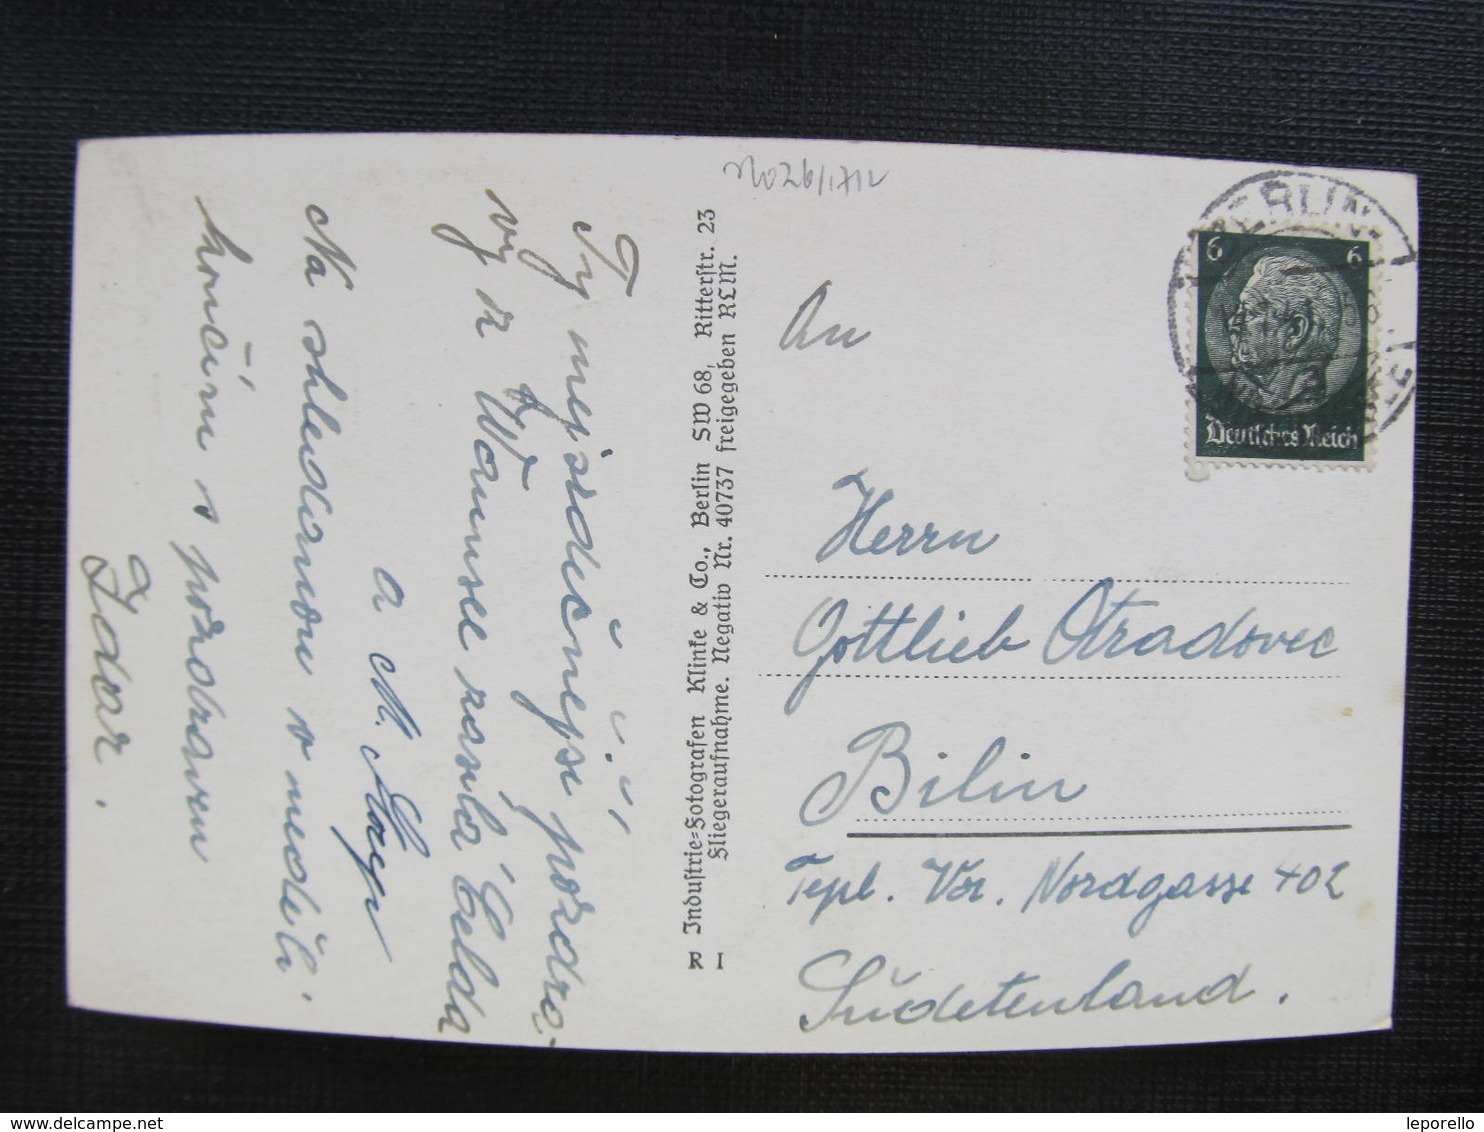 Ty nejsrdečnější pozdra-
vy z Wannsee zasílá Čelda
a M.
Na shledanou v neděli.
končím s pozdravem
Zdar.
Industrie-Fotografen Klinke & Co., Berlin SW 68, Ritterstr. 23
Fliegeraufnahme. Negativ Nr. 40737 freigegeben RLM.
R I
BERLIN
6 6
Deutsches Reich
An
Herrn
Gottlieb Otradovec
Bilin
Tepl. Vor. Nordgasse 402
Sudetenland.
leporello